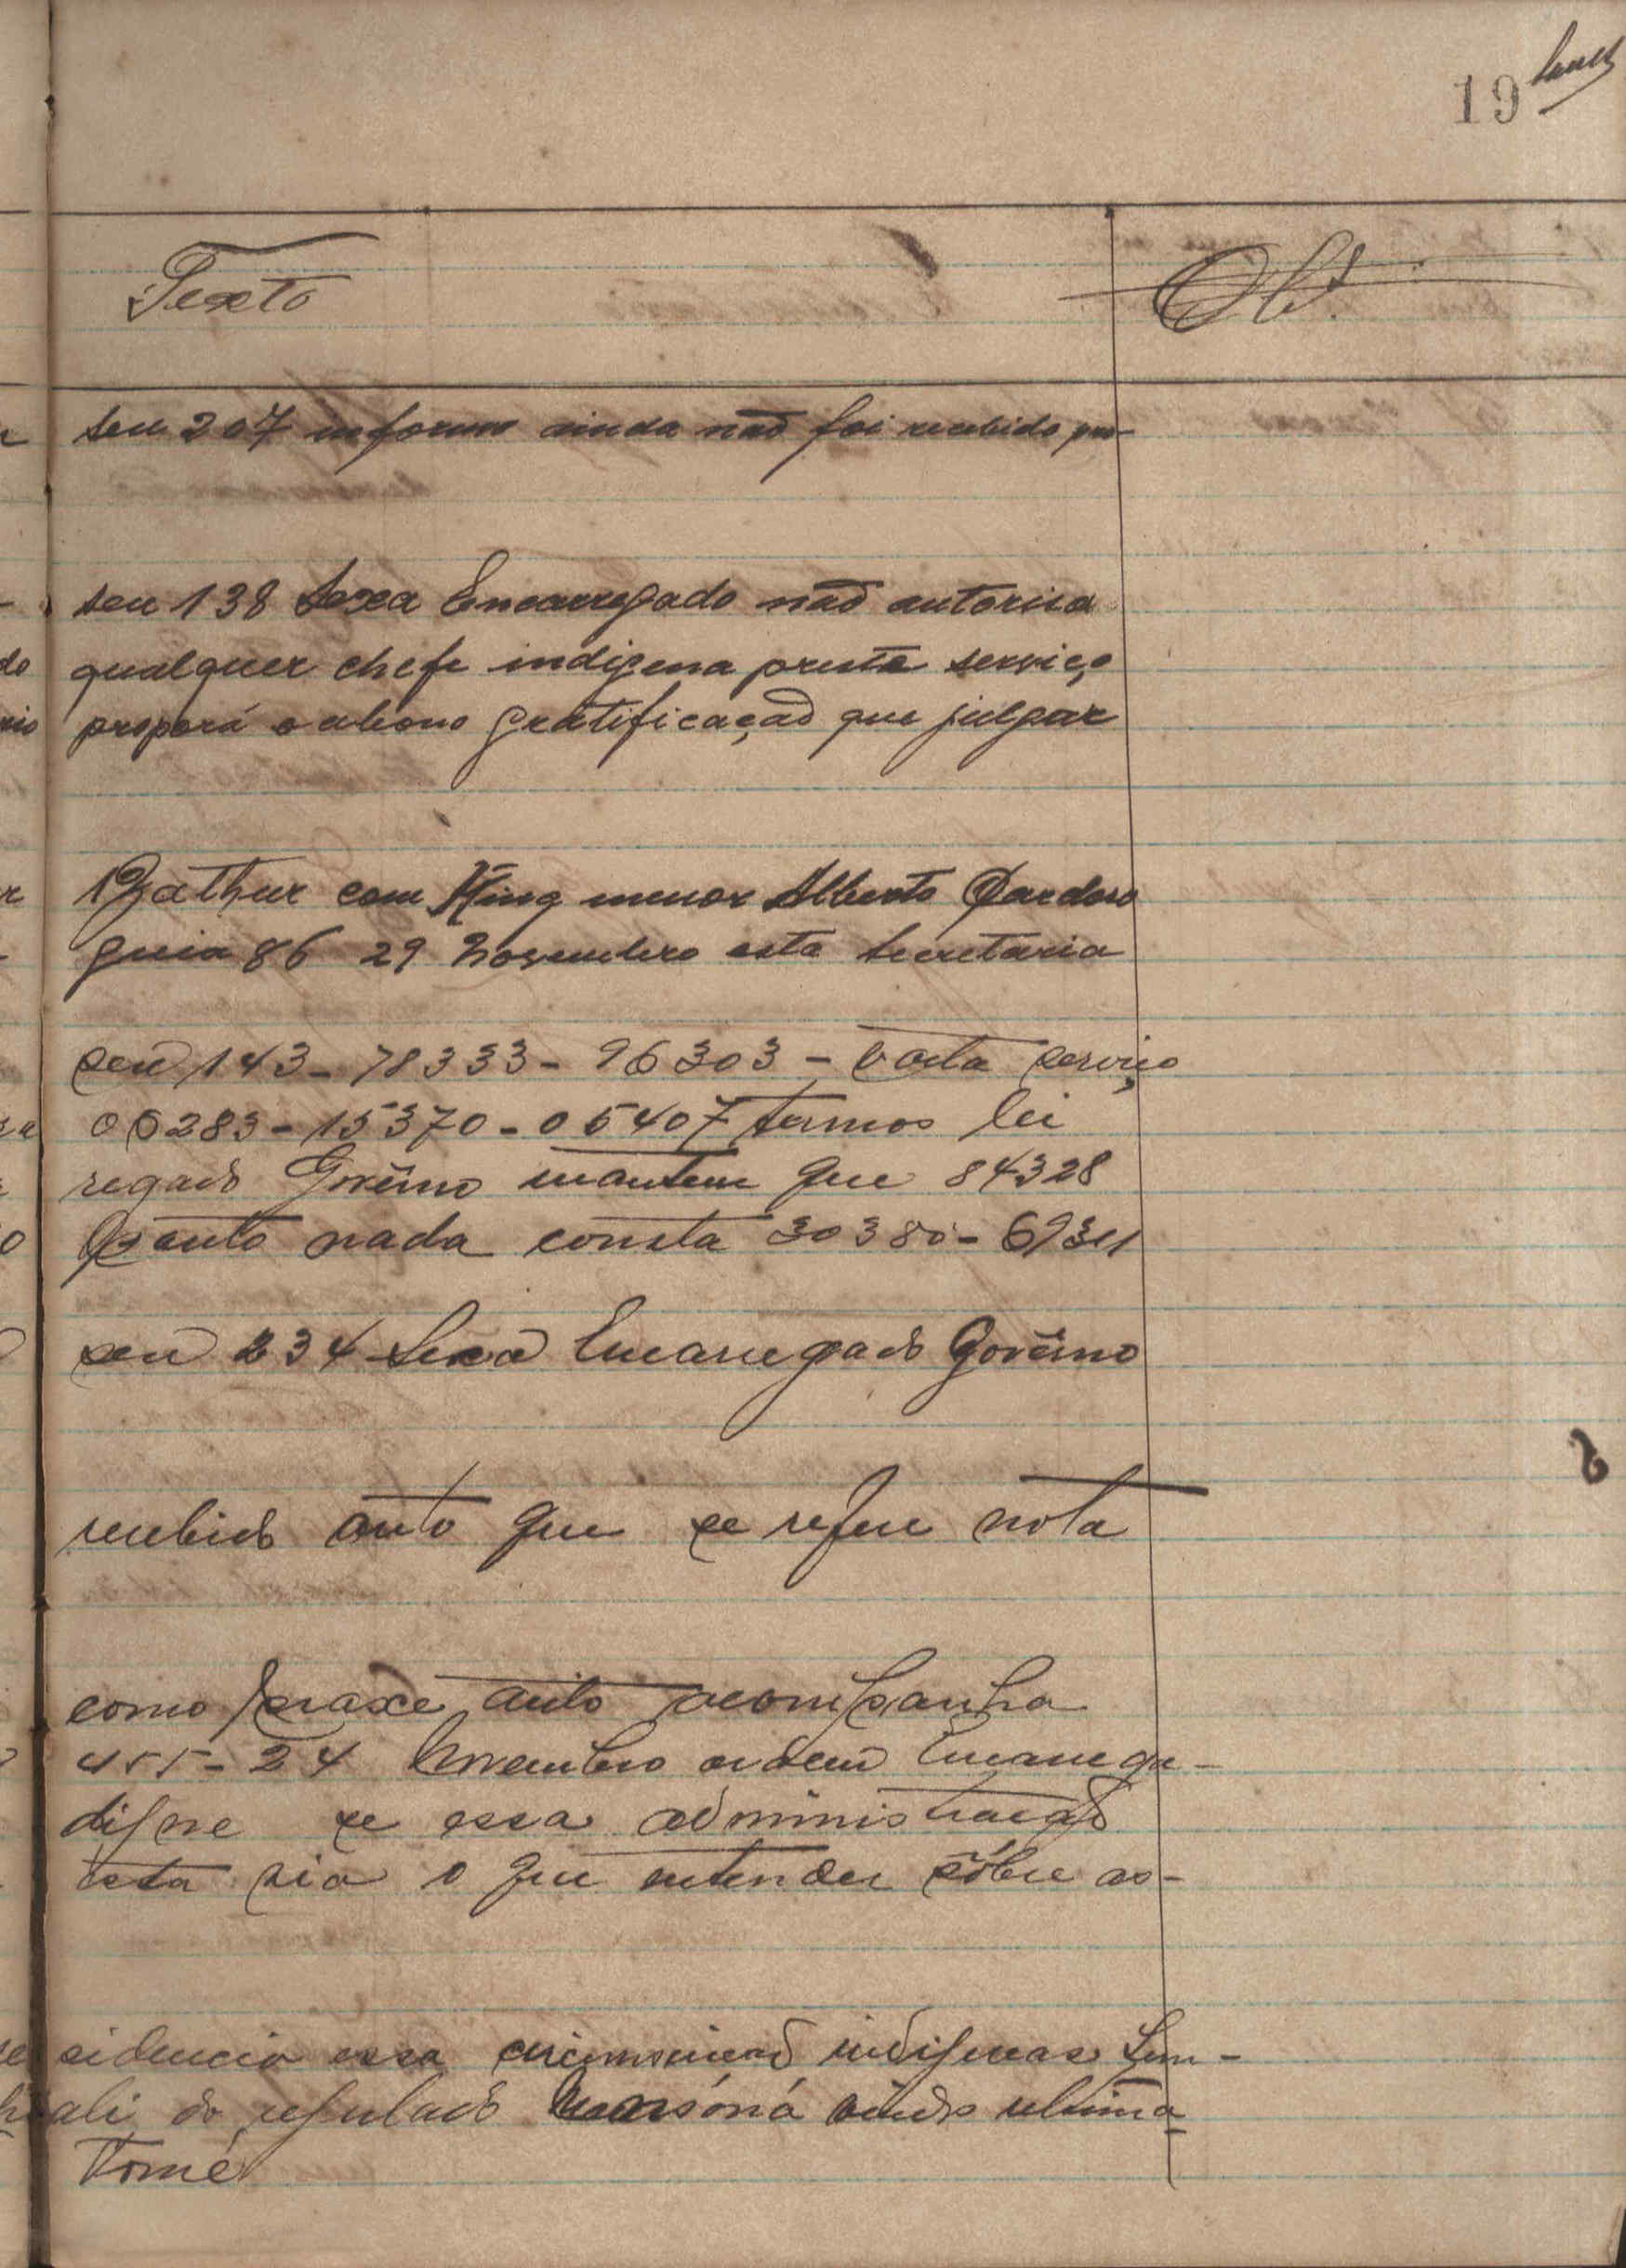 19
Texto
seu 207 informo ainda não foi recebido
seu 138 Sexa Encarregado não autorisa
qualquer chefe indigena preste serviço
proporá o abono gratificação que julgar
Bathur com King menor Alberto Cardoso
guia 86 29 Novembro esta secretaria
seu 143 - 78333 - 96303 - serviço
06283 - 15370 - 05407 termos lei
regado Govêrno mantem que 84328
nada consta 30380 - 69311
seu 234 Sexa Encarregado Govêrno
recebido auto que se refere nota
como praxe auto acompanha
455 - 24 Novembro ordem Encarrega-
digne se essa administração
esta via o que entender sôbre as-
sidencia essa circunscrição indigenas
ali do regulado ultima
Tomé